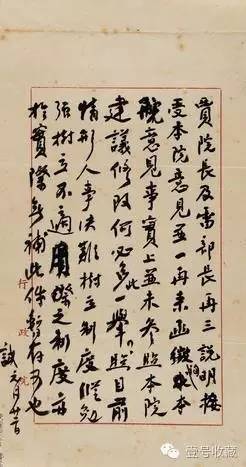 賈院長及雷部長再三說明接
受本院意見並一再來函徵求本
院意見事實上並未參照本院
建議修改何必多此一舉照目前
情形人事決難樹立制度縱勉
強樹立不適用之制度亦
於實際無補此件暫存可也
誠
行政院
壹号收藏